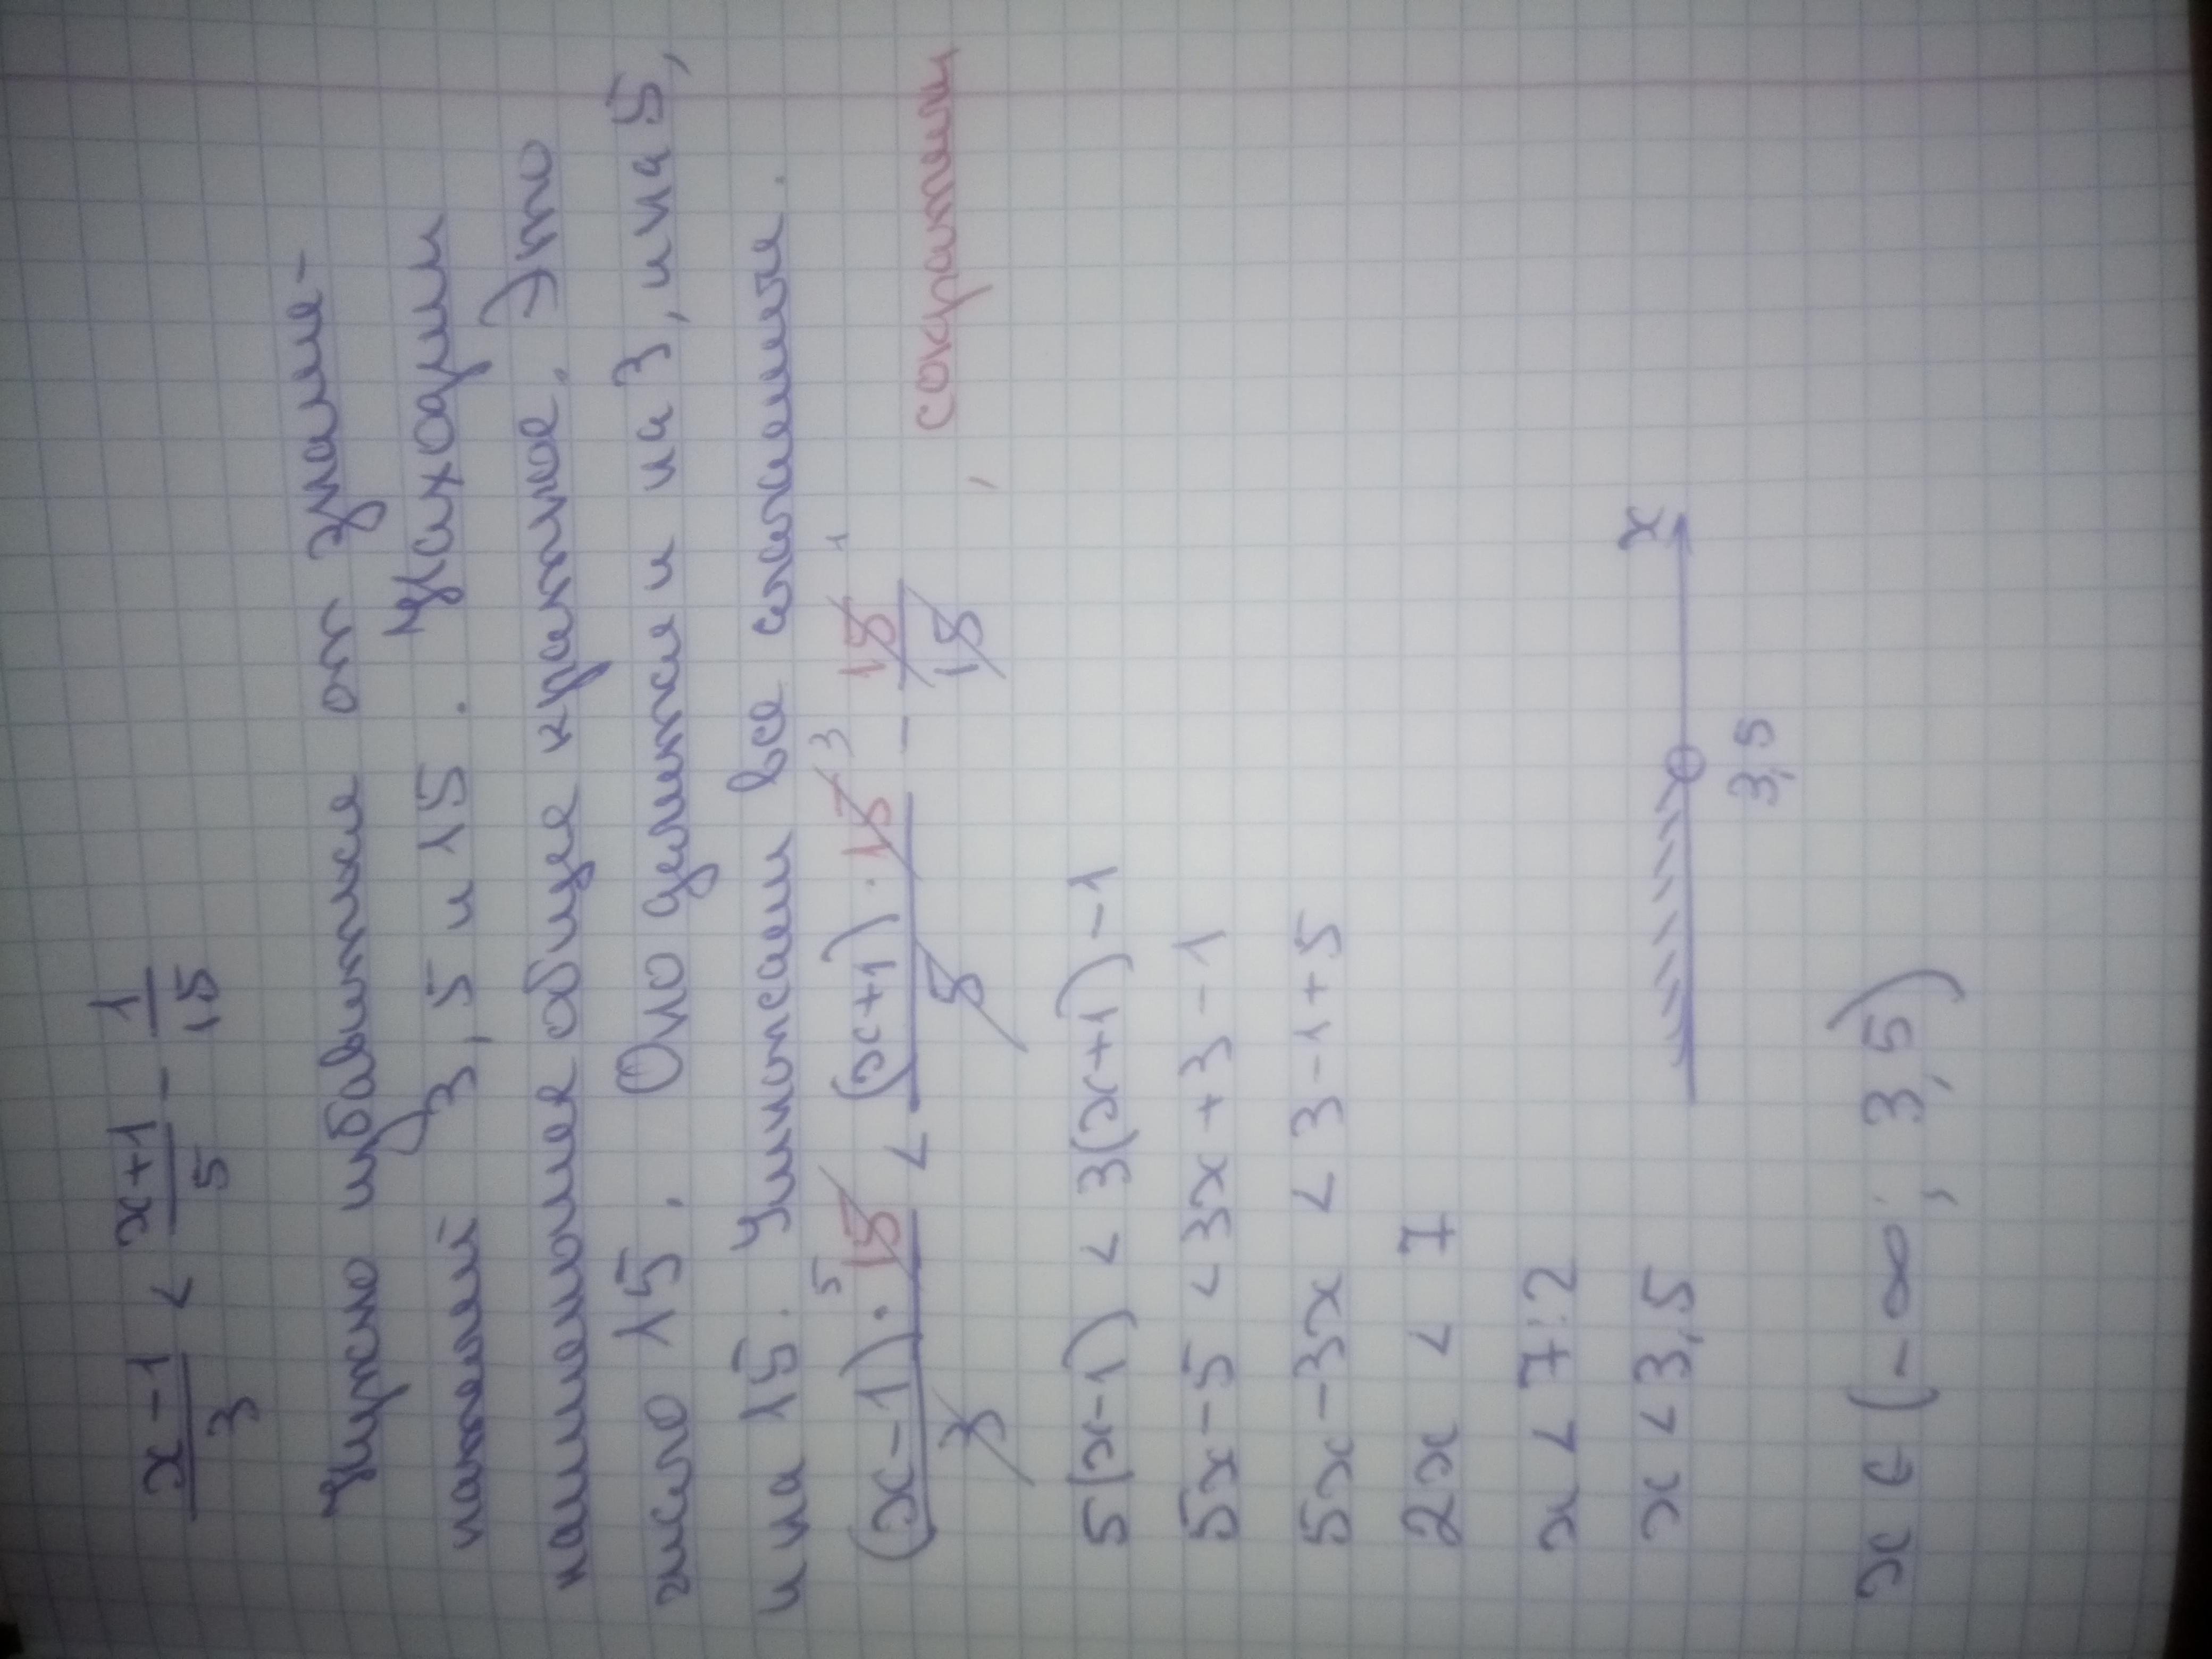 x-1/3 < x+1/5 - 1/15
Нужно избавиться от знаме-
нателей 3, 5 и 15. Находим
наименьшее общее кратное. Это
число 15. Оно делится и на 3, и на 5,
и на 15. Умножаем все слагаемые.
(x-1)·15 5/3 < (x+1)·15 3/5 - 15 1/15, сократим
5(x-1) < 3(x+1) -1
5x-5 < 3x+3-1
5x-3x < 3-1+5
2x < 7
x < 7:2
x < 3,5
x
3,5
x ∈ (-∞; 3,5)